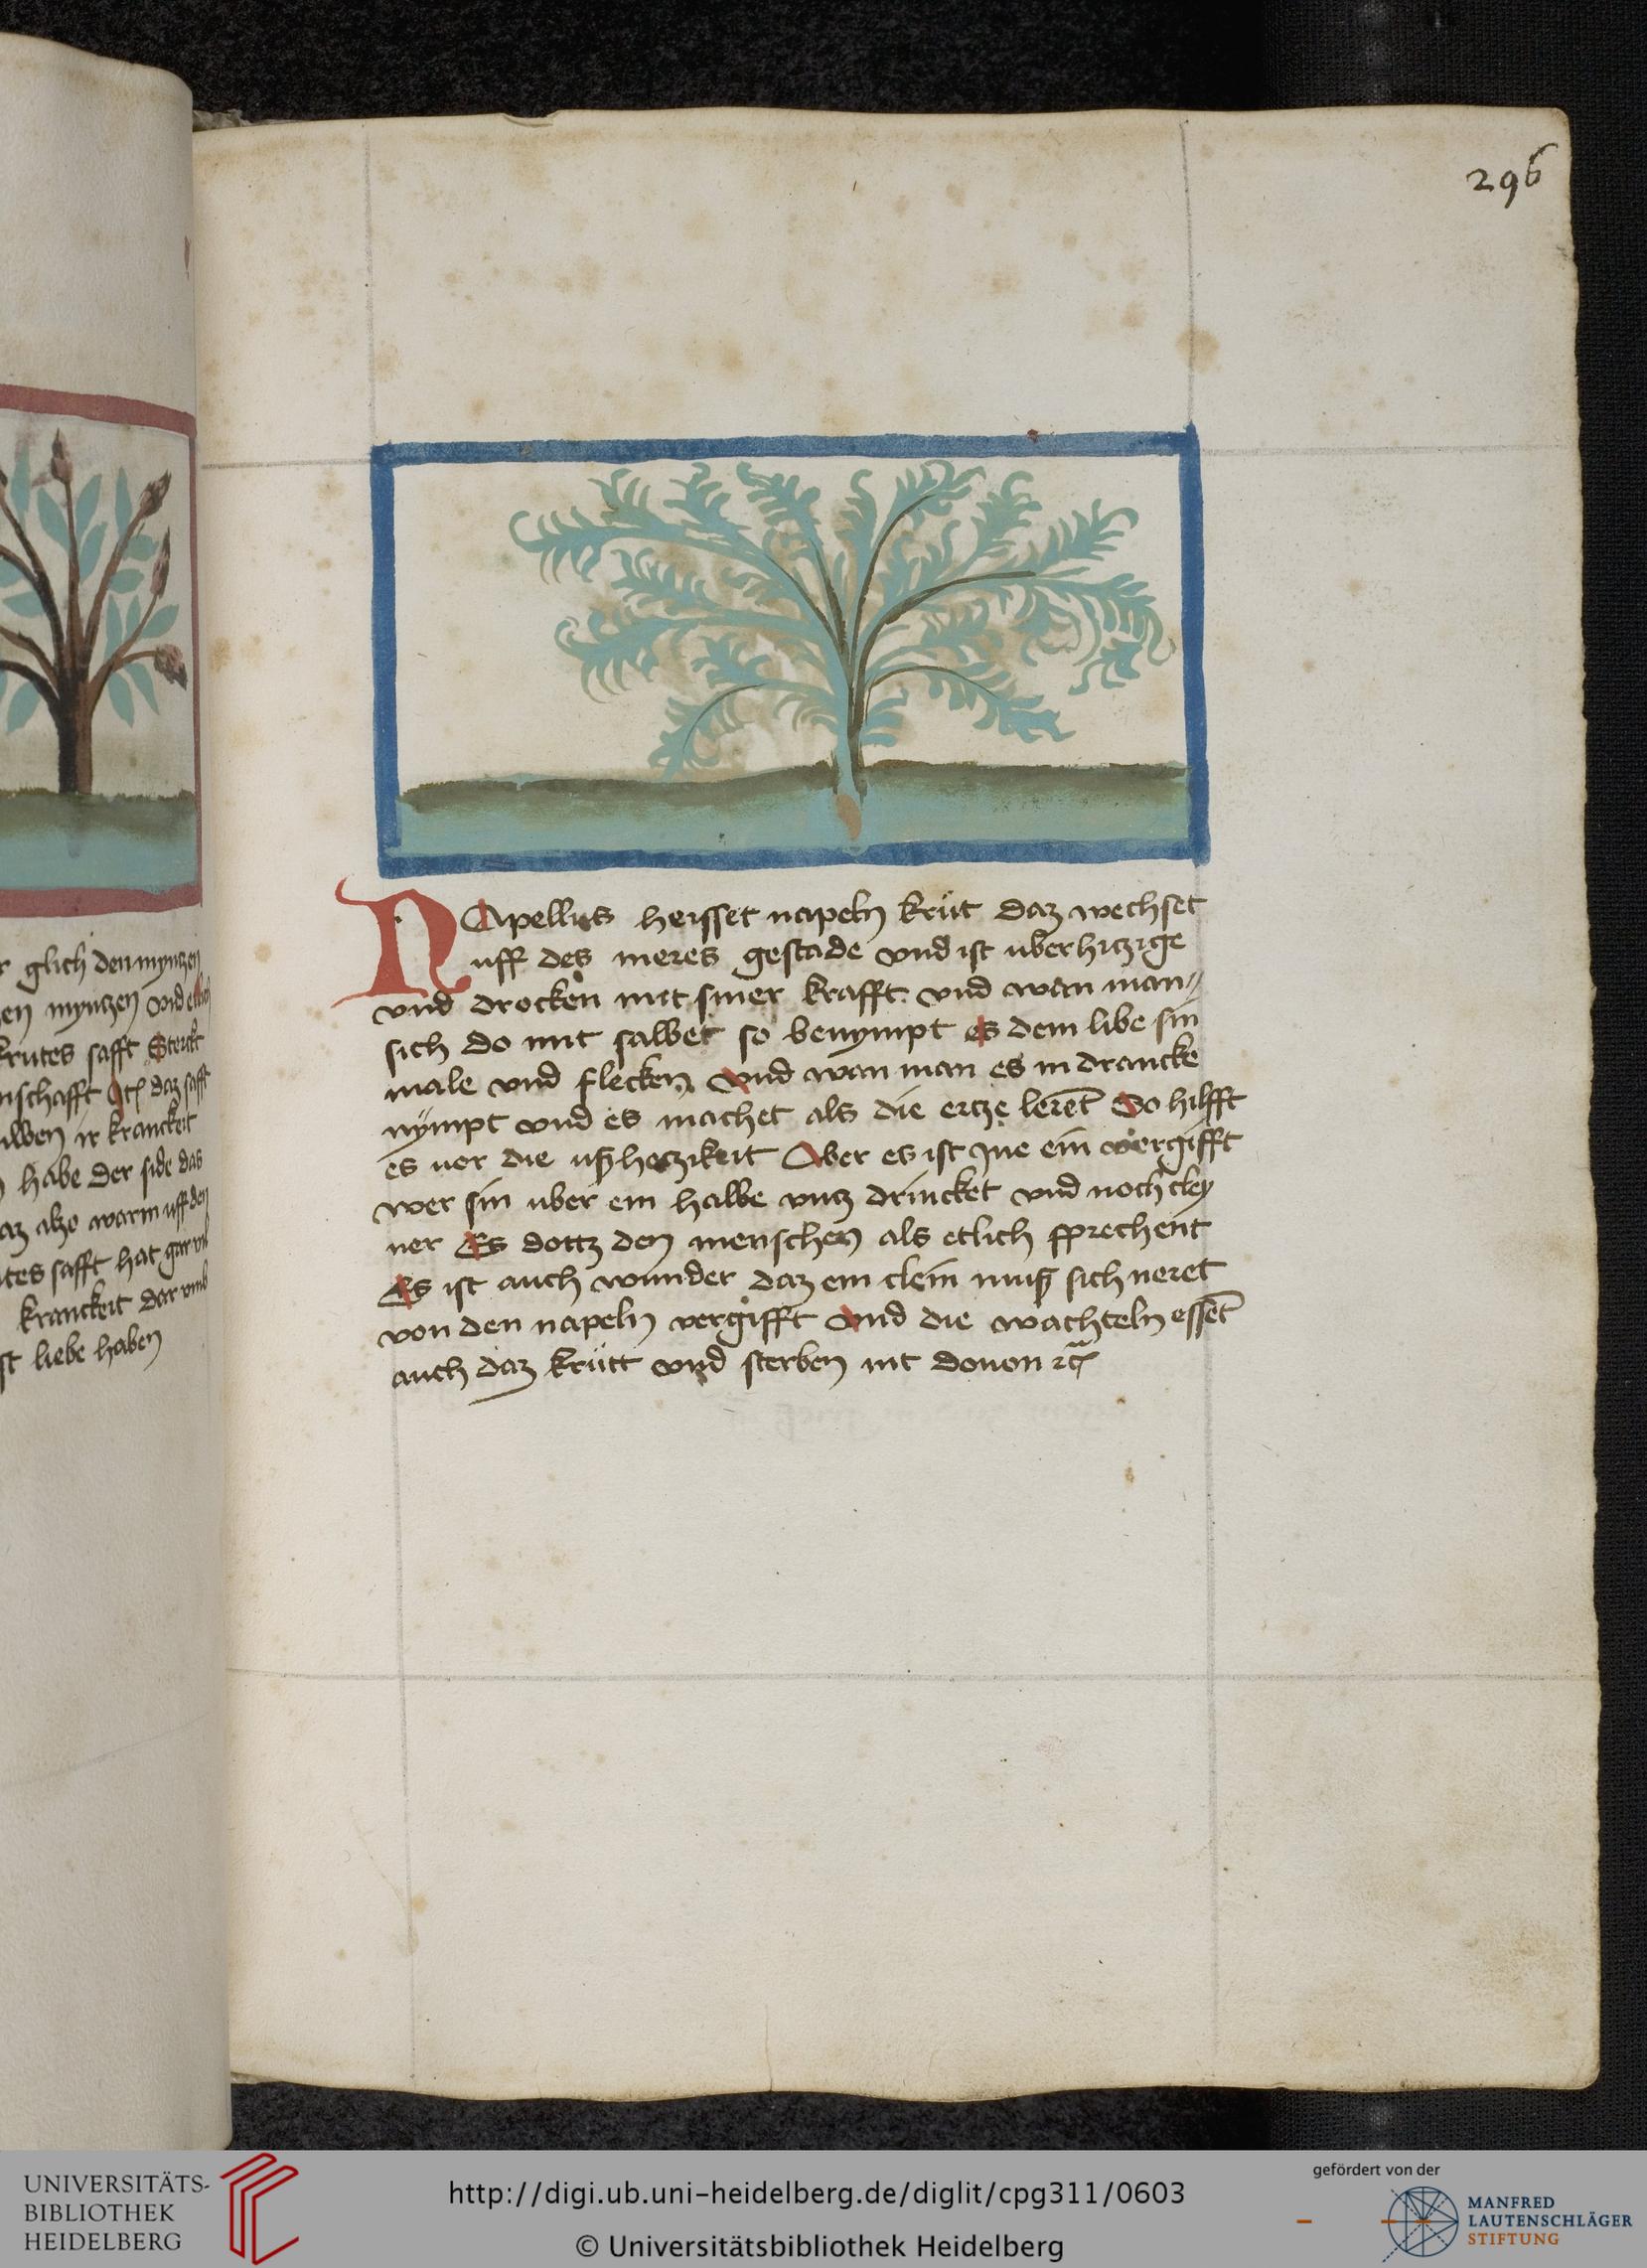 296
r glich den myntzen
en myntzen vnd
krutes safft Sterckt
nschafft Itē daz safft
alben ir kranckeit
habe der side das
az alzo warm uff den
utes safft hat gar vil
kranckeit dar vmb
st liebe haben
NApellus heisset napeln krüt daz wechset
uff des meres gestade vnd ist uberhitzige
vnd drocken mit siner krafft vnd wan man
sich do mit salbet so benympt es dem libe sin
male vnd flecken vnd wan man es in drancke
nÿmpt vnd es machet als die ertze lerēt So hilfft
es uor die uszhetzikeit Aber es ist Jne ein vergifft
wer sin uber ein halbe vntz drincket vnd noch cley
ner Es dottz den menschen als etlich sprechent
Es ist auch wunder daz ein clein musz sich neret
von den napeln vergifft vnd die wachteln essēt
auch daz krütt vnd sterben nit douon
UNIVERSITÄTS-
BIBLIOTHEK
HEIDELBERG
http://digi.ub.uni-heidelberg.de/diglit/cpg311/0603
© Universitätsbibliothek Heidelberg
gefördert von der
MANFRED
LAUTENSCHLÄGER
STIFTUNG